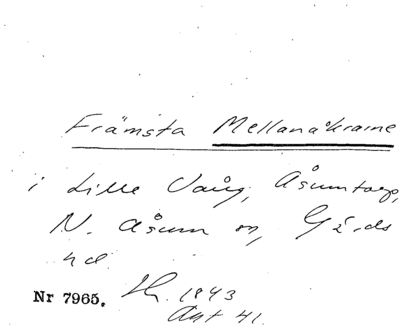 Främsta Mellanåkrarne
i Lille Vång, Åsumtorp,
N. Åsum sn, Gärds
hd.
Nr 7965. 1843
Akt 41.